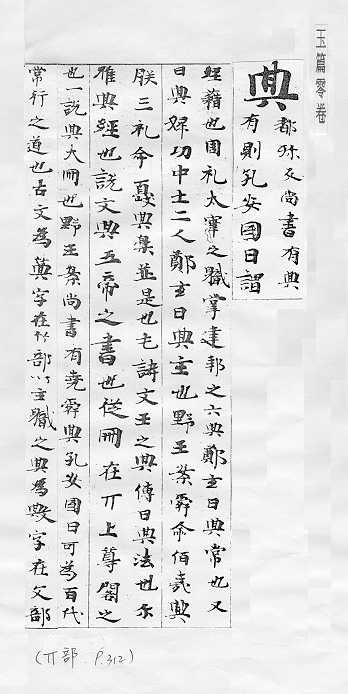 玉篇零卷
典 都殄反尚書有典
有則孔安國曰謂
經籍也周礼太宰之職掌建邦之六典鄭玄曰典常也又
曰典婦功中士二人鄭玄曰典主也野王案舜命伯夷典
朕三礼命夔典樂並是也毛詩文王之典傳曰典法也尔
雅典經也說文典五帝之書也從冊在丌上尊閣之
也一說典大冊也野王案尚書有堯舜典孔安國曰可為百代
常行之道也古文為箕字在竹部以主職之典為敟字在攴部
(丌部 P.312)